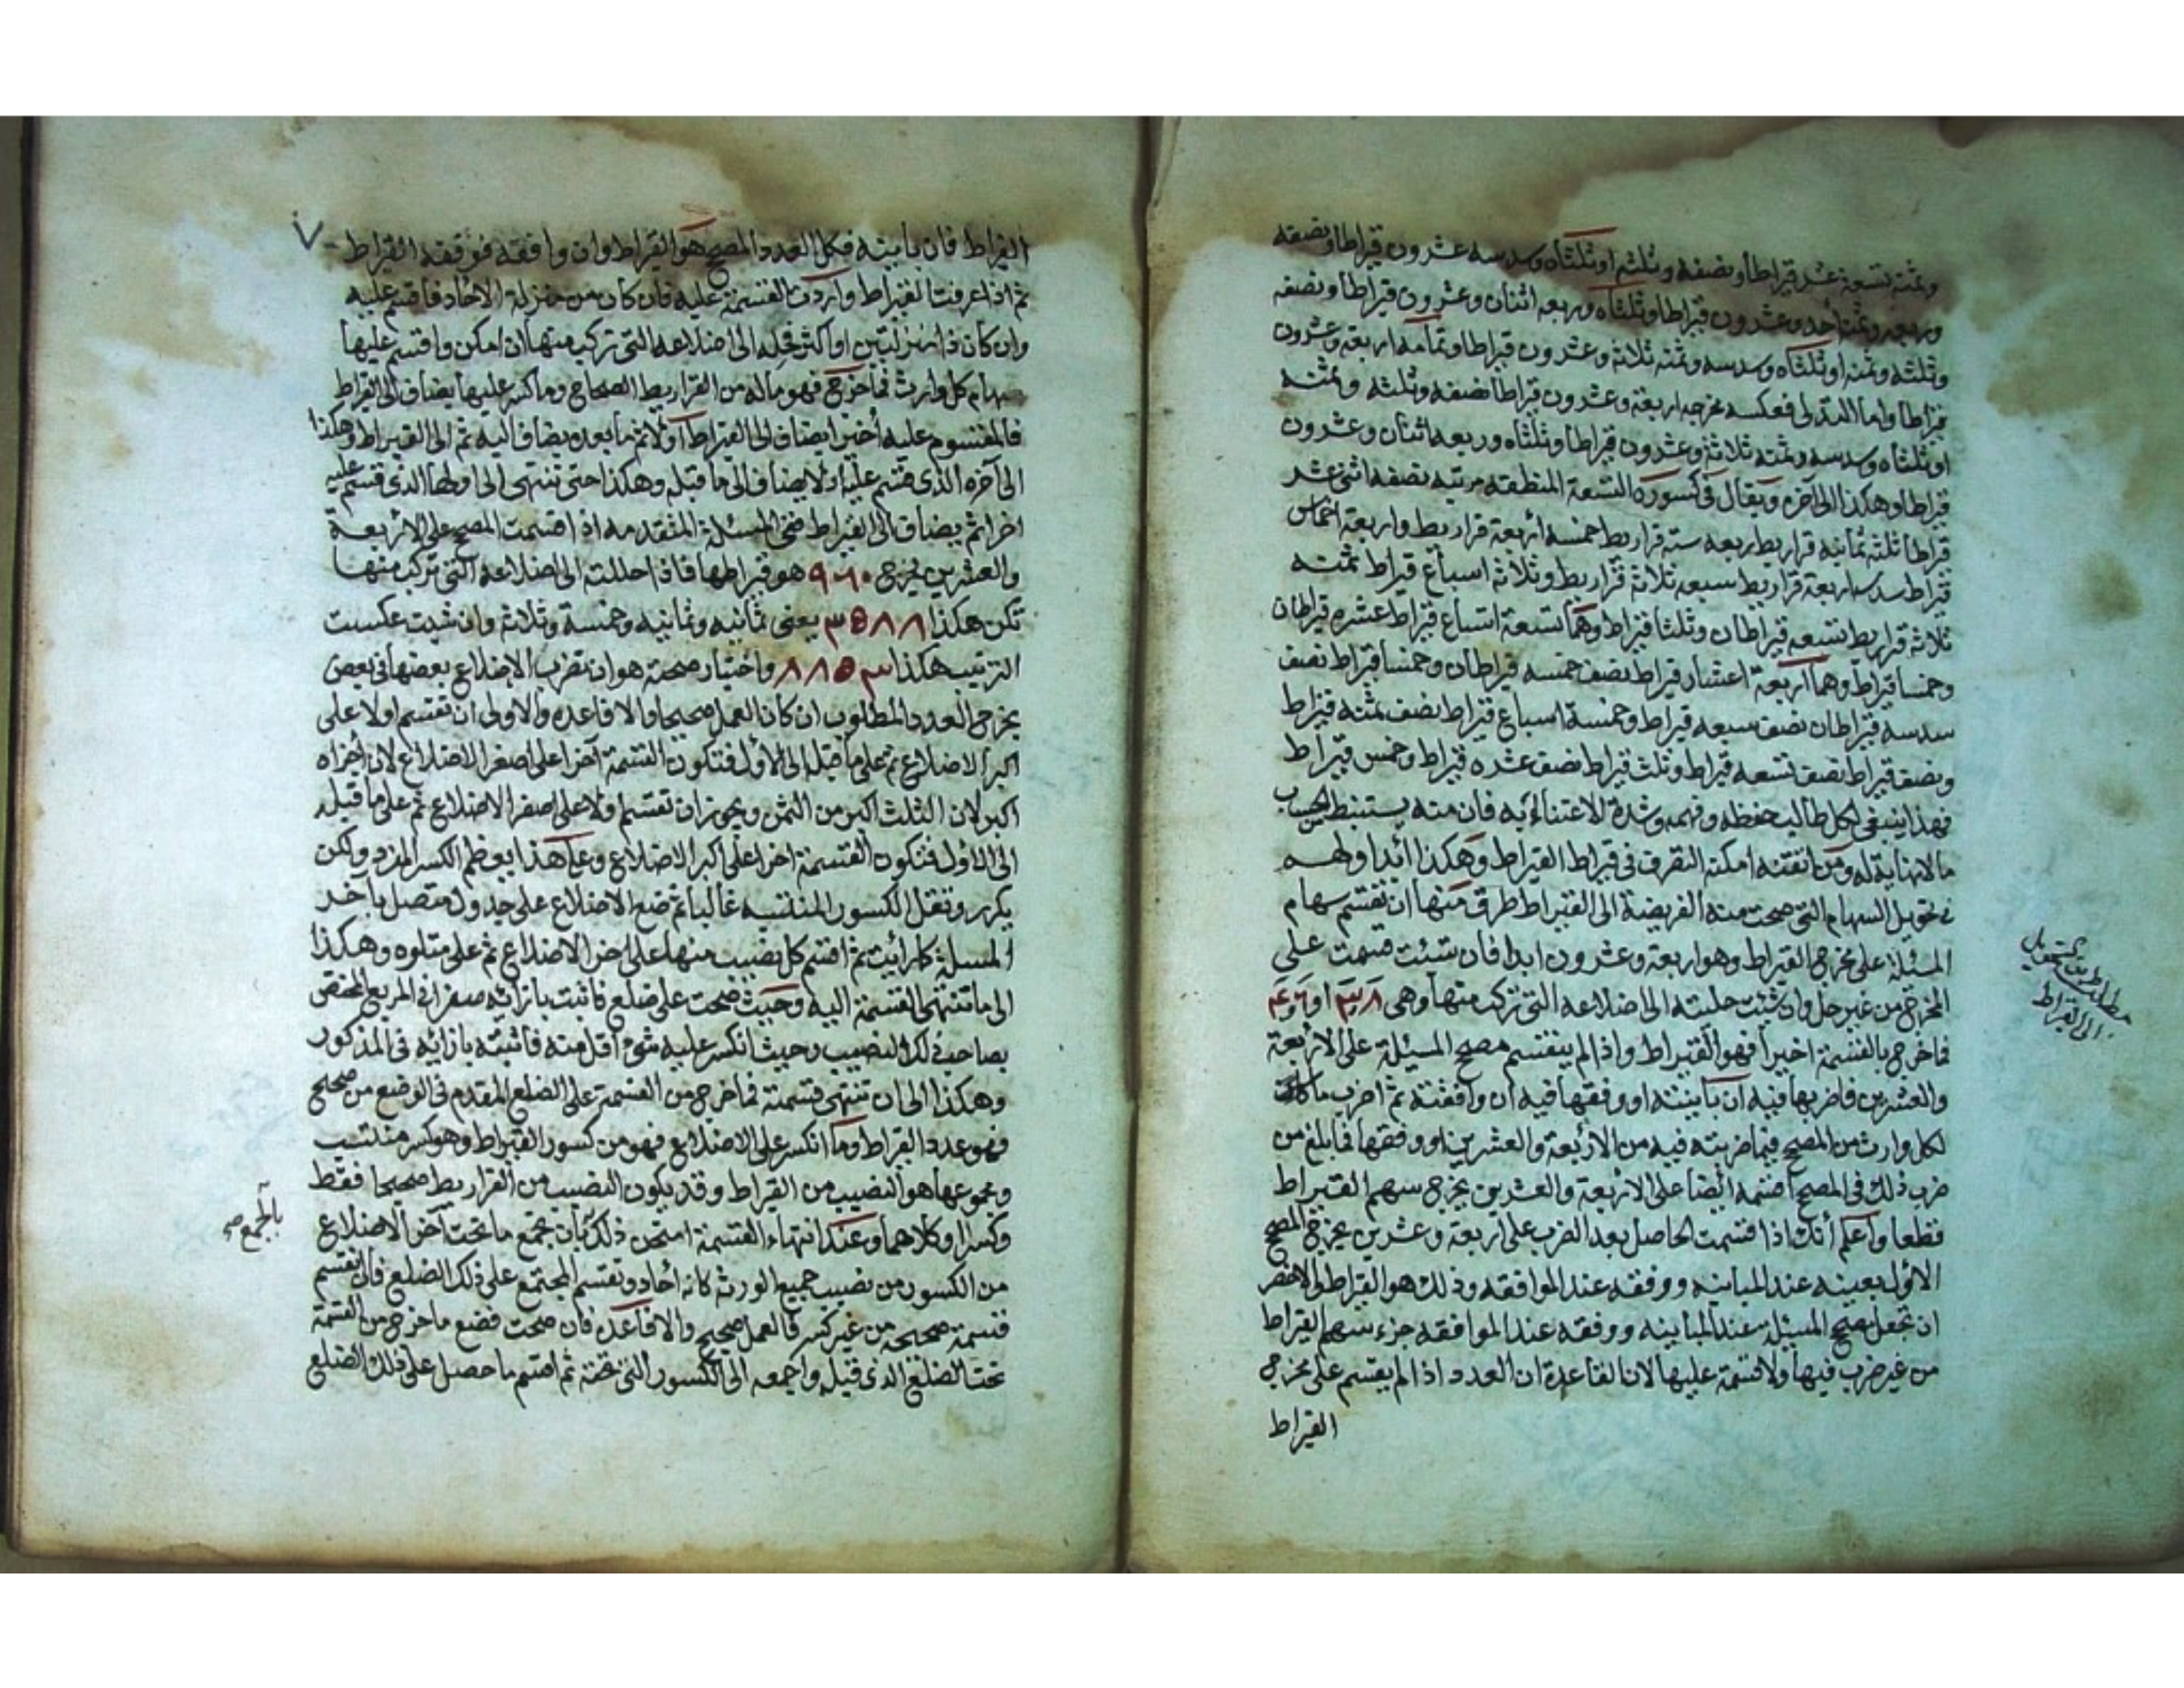 وثمنه تسعة عشر قيراطا ونصفه وثلثه او ثلثاه وسدسه عشرون قيراطا ونصفه
وربعه وثمنه أحد وعشرون قيراطا وثلثاه وربعه اثنان وعشرون قيراطا ونصفه
وثلثه وثمنه او ثلثاه وسدسه وثمنه ثلاثة وعشرون قيراطا وتمامه اربعة وعشرون
قيراطا واما التدلى فعكسه مخرجه اربعة وعشرون قيراطا نصفه وثلثه وثمنه
او ثلثاه وسدسه وثمنه ثلاثة وعشرون قيراطا وثلثاه وربعه اثنان وعشرون
قيراطا وهكذا الى آخره ويقال فى كسوره التسعة المنطقة مرتبه نصفه اثنى عشر
قيراطا ثلثه ثمانيه قراريط ربعه ستة قراريط خمسه أربعة قراريط واربعة اخماس
قيراط سدسه اربعة قراريط سبعه ثلاثة قراريط وثلاثة اسباع قيراط ثمنه
ثلاثة قراريط تسعه قيراطان وثلثا قيراط وهما تسعة اتساع قيراط عشره قيراطان
وخمسا قيراط وهما اربعة اعشار قيراط نصف خمسه قيراطان وخمسا قيراط نصف
سدسه قيراطان نصف سبعه قيراط وخمسة اسباع قيراط نصف ثمنه قيراط
ونصف قيراط نصف تسعه قيراط وثلث قيراط نصف عشره قيراط وخمس قيراط
فهذا ينبغى لكل طالب حفظه وفهمه وشدة الاعتناء به فان منه يستنبط الحساب
ما لا نهاية له ومن اتقنه امكنه التصرف فى قيراط القيراط وهكذا أبدا ولهـــم
فى تحويل السهام التى صحت منه الفريضة الى القيراط طرق منها ان تقسم سهام
المسئلة على مخرج القيراط وهو اربعة وعشرون ابدا فان شئت قسمت على
المخرج من غير حل وان شئت حليته الى اضلاعه التى تركب منها وهى ٨ و٣ او ٦ و٤
فما خرج بالقسمة اخيرا فهو القيراط واذا لم ينقسم مصح المسئلة على الاربعة
والعشرين فاضربها فيه ان باينته او وفقها فيه ان وافقته ثم اضرب ما كان
لكل وارث من المصح فيما ضربته فيه من الاربعة والعشرين او وفقها فما بلغ من
ضرب ذلك فى المصح اقسمه ايضا على الاربعة والعشرين يخرج سهم القيراط
قطعا واعلم أنك اذا قسمت الحاصل بعد الضرب على اربعة وعشرين يخرج المصح
الاول بعينه عند المباينه ووفقه عند الموافقه وذلك هو القيراط والاخصر
ان تجعل مصح المسئلة عند المباينه ووفقه عند الموافقه جزء سهم القيراط
من غير ضرب فيها ولا قسمة عليها لان القاعدة ان العدد اذا لم ينقسم على مخرج
القيراط
مطلب فى تحويل
الى القيراط
القيراط فان باينه فكل العدد المصح هو القيراط وان وافقه فوفقه القيراط
ثم اذا عرفت القيراط واردت القسمة عليه فان كان من منزلة الآحاد فاقسم عليه
وان كان ذا منزلتين او اكثر فحله الى اضلاعه التى تركب منها ان امكن واقسم عليها
سهام كل وارث فما خرج فهو ماله من القراريط الصحاح وما كسر عليها يضاف الى القيراط
فالمقسوم عليه أخيرا يضاف الى القيراط اولا ثم ما بعده يضاف اليه ثم الى القيراط وهكذا
الى آخره الذى قسم عليه اولا يضاف الى ما قبله وهكذا حتى تنتهى الى اولها الذى قسم عليه
اخرا ثم يضاف الى القيراط ففى المسئلة المتقدمه اذا قسمت المصح على الاربعة
والعشرين يخرج ٩٠٦٠ هو قيراطها فاذا حللته الى اضلاعه التى تركب منها
تكن هكذا ٨ ٨ ٥ ٣ يعنى ثمانيه وثمانيه وخمسة وثلاثه وان شئت عكست
الترتيب هكذا ٣ ٥ ٨ ٨ واختبار صحته هو ان تضرب الاضلاع بعضها فى بعض
يخرج العدد المطلوب ان كان العمل صحيحا والا فاعده والاولى ان تقسم اولا على
اكبر الاضلاع ثم على ما قبله الى الأول فتكون القسمة آخرا على اصغر الاضلاع لان أجزاه
اكبر لان الثلث اكبر من الثمن ويجوز ان تقسم اولا على اصغر الاضلاع ثم على ما قبله
الى الاول فتكون القسمة اخرا على اكبر الاضلاع وعلى هذا يعظم الكسر المفرد ولكن
يكرر وتقل الكسور المنتسبه غالبا ثم ضع الاضلاع على جدول متصل بآخــر
المسئلة كما رأيت ثم اقسم كل نصيب منها على اخر الاضلاع ثم على متلوه وهكــذا
الى ما تنتهى القسمة اليه وحيث صحت على ضلع فاثبت بازائه صفرا فى المربع المختص
بصاحب ذلك النصيب وحيث انكسر عليه شئ اقل منه فاثبته بازائه فى المذكور
وهكذا الى ان تنتهى قسمته فما خرج من القسمة على الضلع المقدم فى الوضع من صحيح
فهو عدد القيراط وما انكسر على الاضلاع فهو من كسور القيراط وهو كسر منتسب
ومجموعها هو النصيب من القيراط وقد يكون النصيب من القراريط صحيحا فقط
وكسرا وكلاهما وعند انتهاء القسمة امتحن ذلك بأن تجمع ما تحت آخر الاضلاع
من الكسور من نصيب جميع الورثه كانه آحاد وتقسم المجتمع على ذلك الضلع فان انقسم
قسمة صحيحه من غير كسر فالعمل صحيح والا فاعده فان صحت فضع ما خرج من القسمة
تحت الضلع الذى قبله واجمعه الى الكسور التى تحته ثم اقسم ما حصل على ذلك الضلع
بالجمع صح